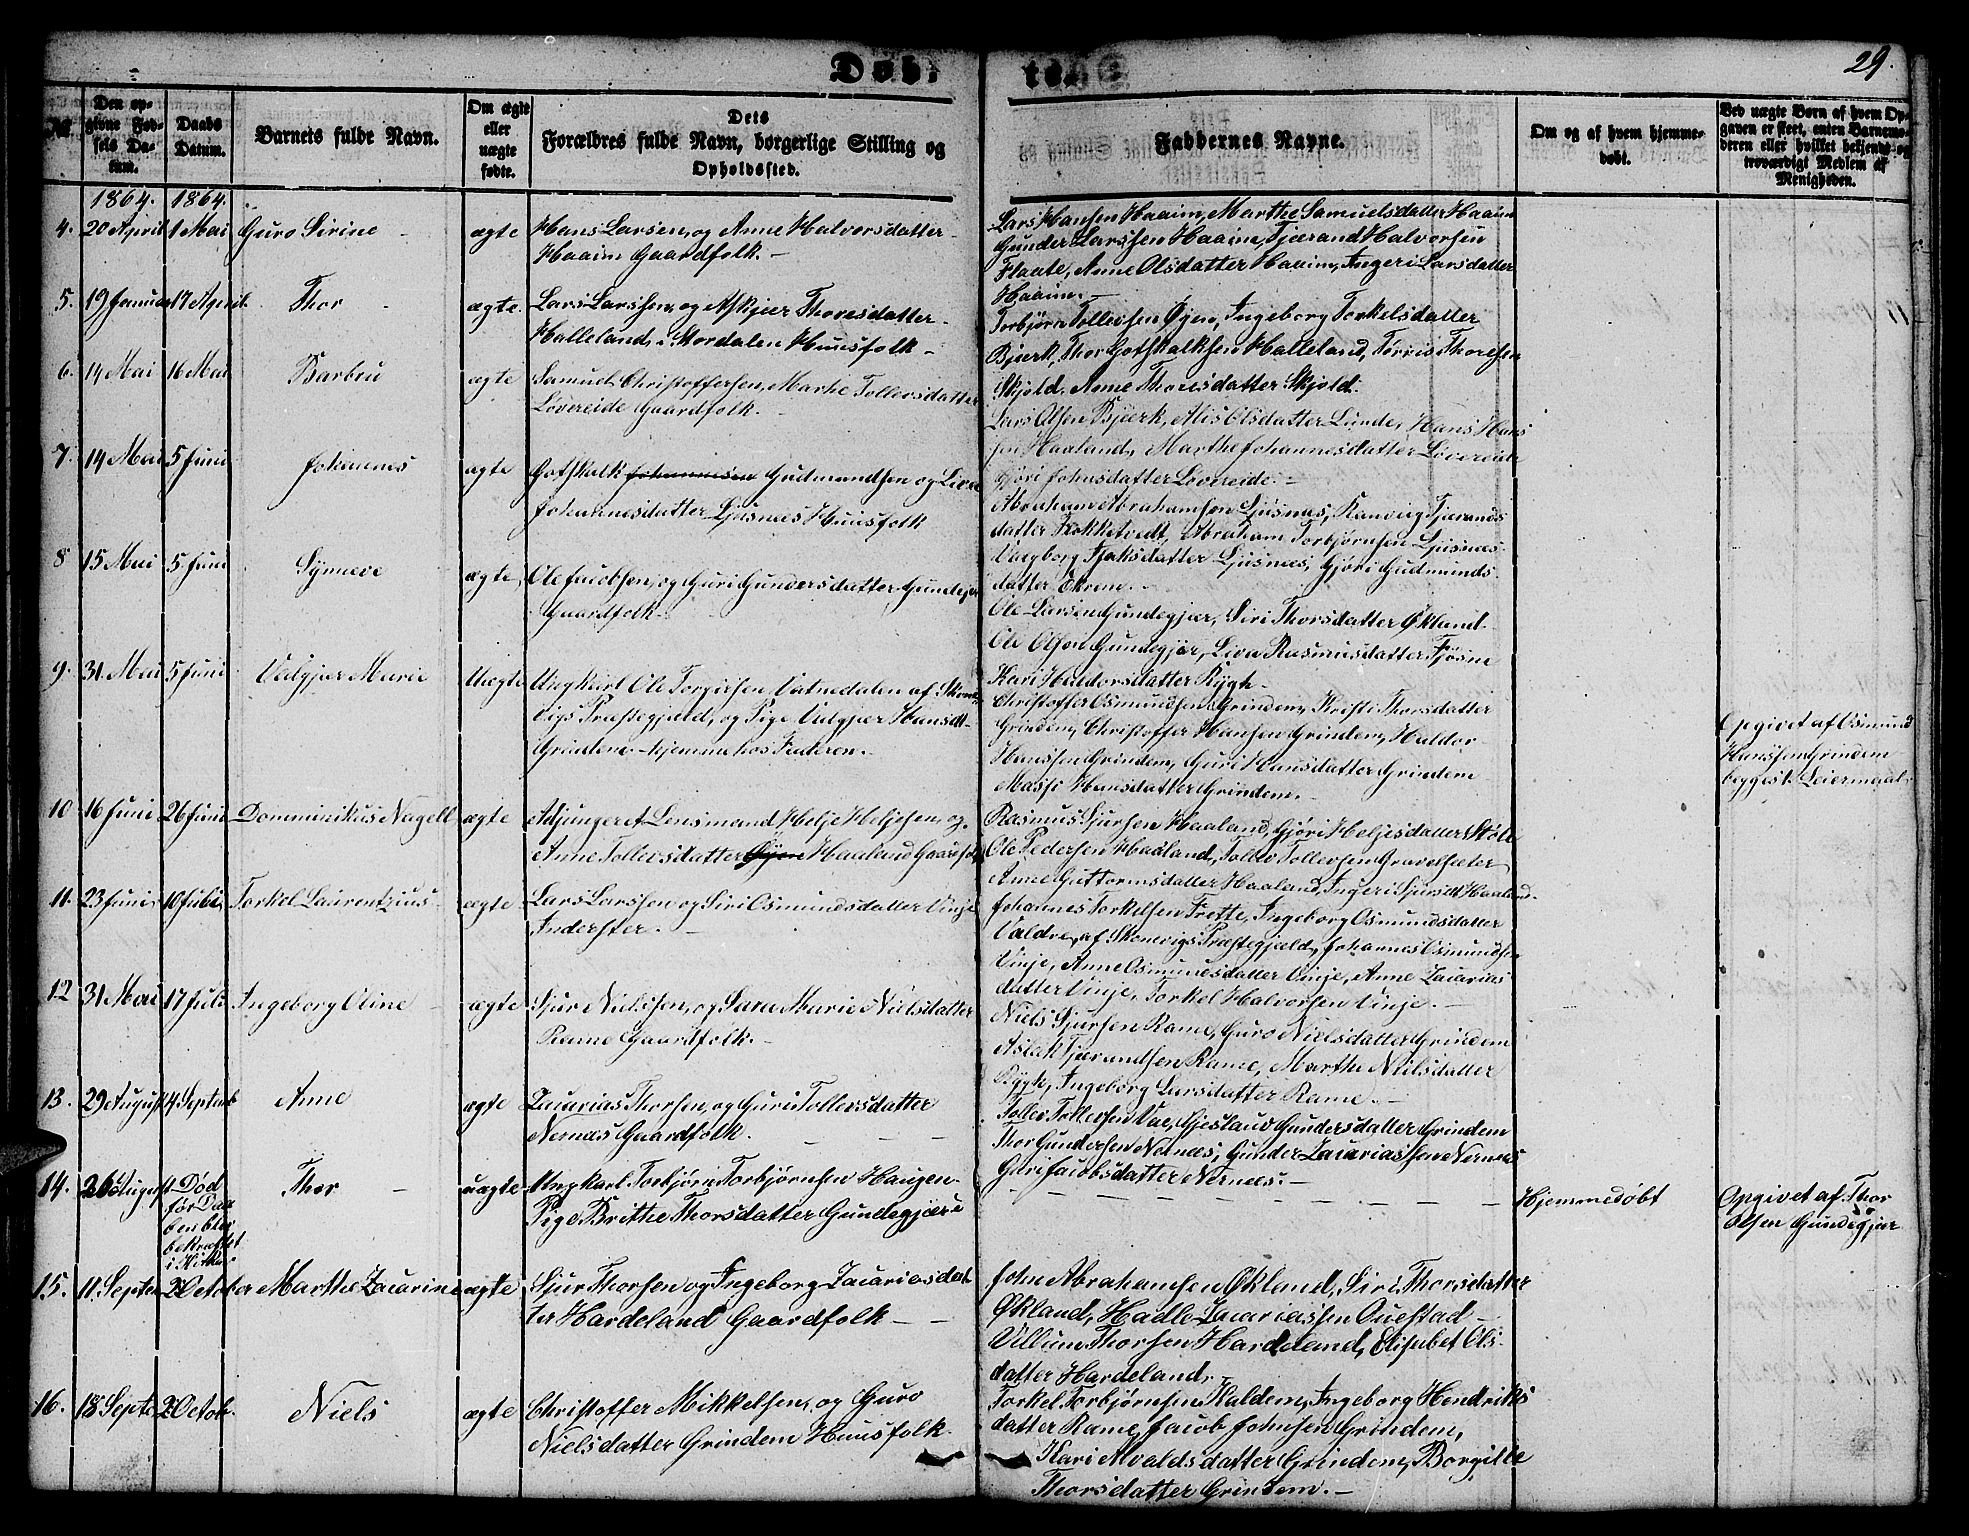 Døb-
te.
29.
No.
Den op-
givne Fød-
sels Da-
tum.
Daabs
Datum.
Barnets fulde Navn.
Om ægte
eller
uægte
fødte.
Dets
Forældres fulde Navn, borgerlige Stilling og
Opholdssted.
Faddernes Navne.
Om og af hvem hjemme-
døbt.
Ved uægte Børn af hvem Op-
gaven er skeet, enten Barnemo-
deren eller hvilket bekjendt og
troværdigt Medlem af
Menigheden.
1864. 1864.
4. 20 April 1 Mai Guro Sirine - ægte Hans Larsen, og Anne Halvorsdatter
Haaim Gaardfolk. -
Lars Hansen Haaim, Marthe Samuelsdatter Haaim
Gunder Larssen Haaim, Tjærand Halvorsen
Flaate, Anne Olsdatter Haaim, Ingeri Larsdatter
Haaim. -
5. 19 Januar 17 April Thor - ægte. Lars Larssen, og Askjær Thoresdatter
Halleland, i Mordalen Huusfolk -
Torbjørn Tollevsen Øyen, Ingeborg Torkelsdatter
Bjerk, Thor Gotskalksen Halleland, Tørris Thoresen
Skjold, Anne Thoresdatter Skjold.
6. 14 Mai 16 Mai Barbru ægte Samuel Christoffersen, Marthe Tollevsdatter
Løvereide Gaardfolk. -
Lars Olsen Bjerk, Alis Olsdatter Lunde, Hans Han-
sen Haaland, Marthe Johannesdatter Løvereide
Gjøri Johnsdatter Løvereide. -
7. 14 Mai 5 Juni Johannes ægte Gotskalk Johannesen Gudmundsen og Liva
Johannesdatter Ljusnæs Huusfolk
Abraham Abrahamsen Ljusnæs, Ranvig Tjærands
datter Fjokketvedt, Abraham Torbjørnsen Ljusnæs
Ljusnæs, Gjøri Gudmunds-
datter Ekrene. -
8 15 Mai 5 Juni Synneve ægte, Ole Jacobsen, og Guri Gundersdatter Gundegjær
Gaardfolk.
Ole Larsen Gundegjær, Siri Thorsdatter Økland
Ole Olsen Gundegjær, Liva Rasmusdatter Fjøsne
Kari Haldorsdatter Rygh -
9. 31 Mai 5 Juni Valgjær Marie Uægte Ungkarl Ole Torgiersen Vatnedalen af Skone-
vigs Præstegjæld, og Pige Valgjær Hansdt
Grindem hjemme hos Faderen. -
Christoffer Osmundsen Grindem, Kristi Thorsdatter
Grindem, Christoffer Hansen Grindem, Haldor
Hanssen Grindem, Guri Hansdatter Grindem
Massi Hansdatter Grindem. -
Opgivet af Osmund
Hanssen Grindem
begges 1. Leiermaal.
10 16 Juni 26 Juni Domminikus Nagell ægte Adjungeret Lensmand Helje Heljesen, og
Anne Tollevsdatter Øyen Haaland Gaardfolk
Rasmus Sjursen Haaland, Gjøri Heljesdatter Støle
Ole Pedersen Haaland, Tollev Tollevsen Gravelsæter
Anne Guttormsdatter Haaland, Ingeri Sjursdt Haaland.
11. 23 Juni 10 Juli Torkel Laurentzius ægte Lars Larssen og Siri Osmundsdatter Vinje
Inderster. -
Johannes Torkelsen Frette, Ingeborg Osmundsdatter
Valdre, af Skonevigs Præstegjæld, Johannes Osmundsen
Vinje, Anne Osmundsdatter Vinje, Anne Zacarias
datter Vinje, Torkel Halvorsen Vinje. -
12 31 Mai 17 Juli Ingeborg Oline ægte Sjur Nielssen, og Sara Marie Nielsdatter
Rame Gaardfolk. -
Niels Sjursen Rame, Guro Nielsdatter Grindem
Aslak Tjærandsen Rame, Marthe Nielsdatter
Rygh, Ingeborg Larsdatter Rame. -
13. 29 August 4 Septemb Anne ægte Zacarias Thorsen, og Guri Tollevsdatter
Nernæs Gaardfolk. - - -
Tollev Tollevsen Vae, Gjeslaug Gundersdatter Grindem
Thor Gundersen Nernæs, Gunder Zacariassen Nernæs
Guri Jacobsdatter Nernæs. -
14. 26 August Død
før Daa
ben blev
bekræftet
i Kirken.
Thor - uægte Ungkarl Torbjørn Torbjørnsen Haugen
Pige Brithe Thorsdatter Gundegjær
Hjemmedøbt
Opgivet af Thor
Olsen Gundegjær
15. 11 Septer 2 October Marthe Zacarine ægte Sjur Thorsen og Ingeborg Zacariasdat
ter Hardeland Gaardfolk - -
John Abrahamsen Økland, Siri Thorsdatter
Økland, Hadle Zacariassen Questad -
Villum Thorsen Hardeland, Elisabet Ols-
datter Hardeland.
16. 18 Septe 2 Octob. Niels ægte Christoffer Mikkelsen, og Guro
Nielsdatter Grindem Huusfolk
Torkel Torbjørnsen Kaldem, Ingeborg Hendriks
datter Rame, Jacob Johnsen Grindem,
Kari Avaldsdatter Grindem, Borgille
Thorsdatter Grindem. -